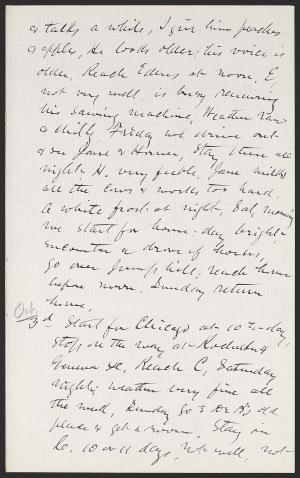 & talks a while, I give him peaches
& apples, He looks older; his voice is
older, Reach Edens at noon, E,
not very well, is busy removing
his sawing machine, Weather raw
& chilly Friday we drive out
& see Jane & Homer, Stay there all
night – H. very feeble, Jane milks
all the cows & works too hard.
A white frost at night, Sat, morning
we start for home; day bright –
encounter a drove of horses,
go over Jump hill; reach home
before noon. Sunday return
home,
Oct.
3d Start for Chicago at 10 to-day,
stop on the way at Rochester &
Geneva &c, Reach C, Saturday
night; weather very fine all
the week, Sunday go to Dr B's old
place & get a room, Stay in
C. 10 or 11 days, not well, not